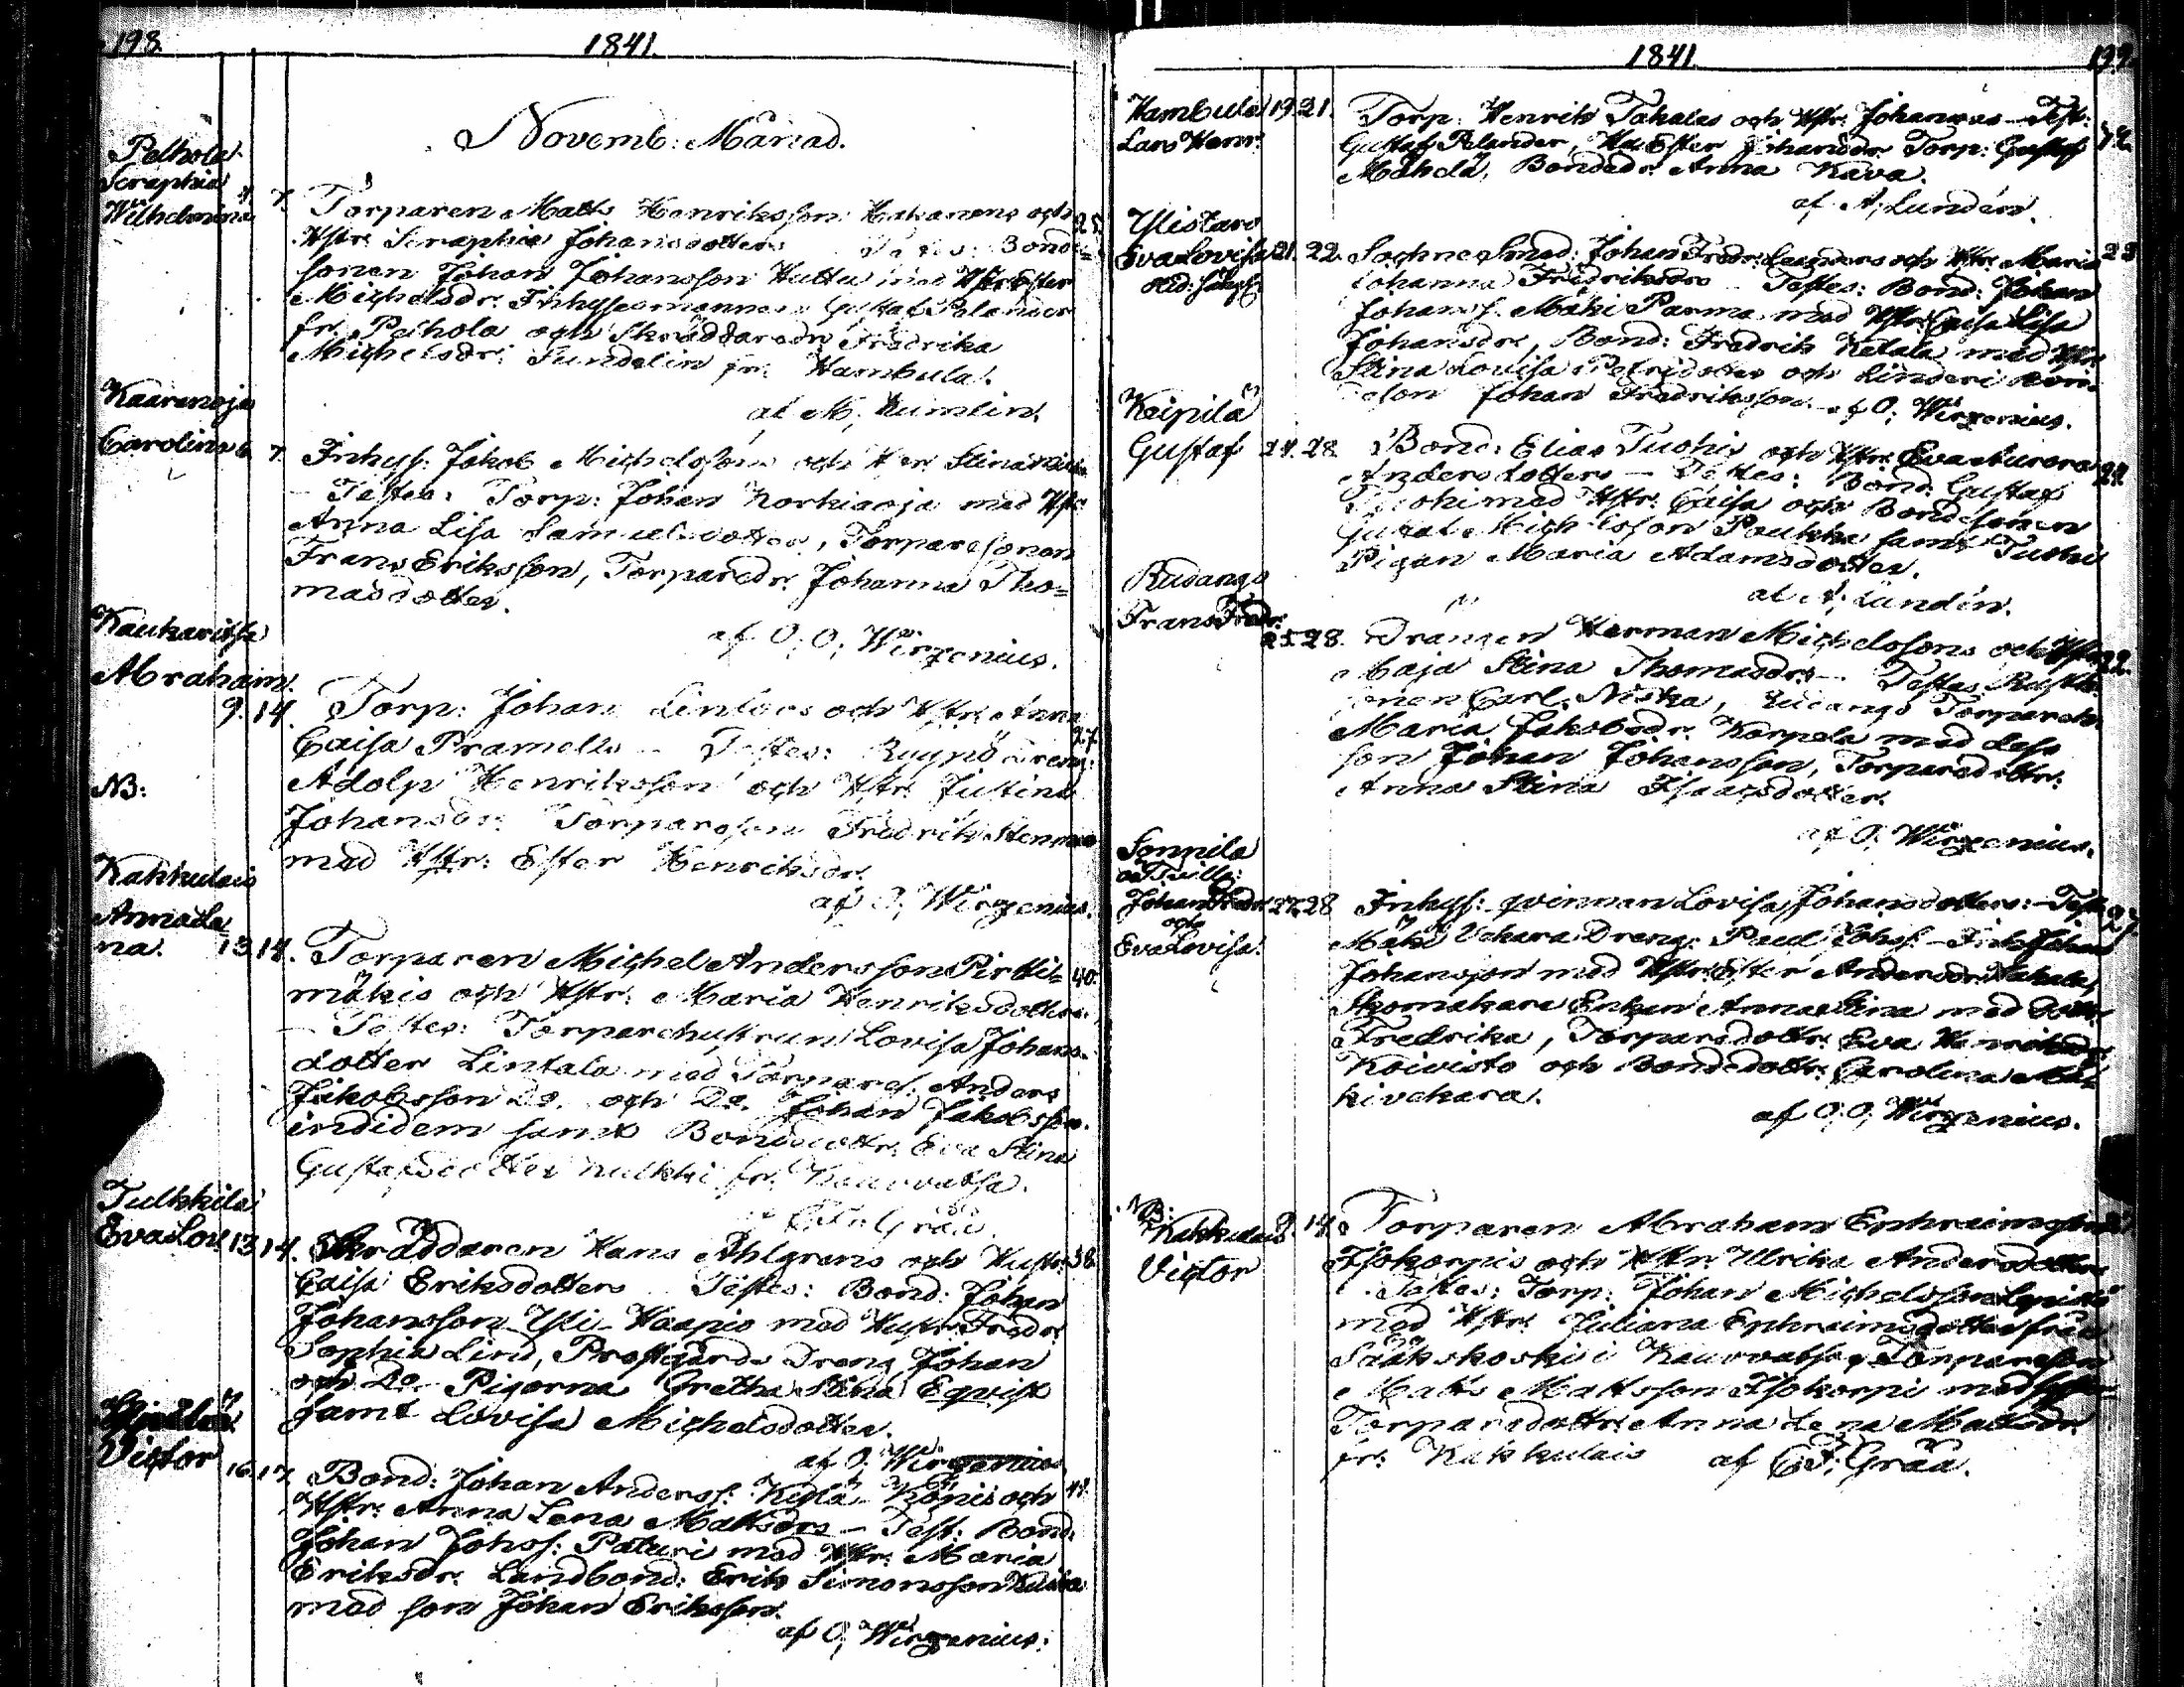 198.
1841.
Novemb: Månad.
Pelhola
Seraphia
Wilhelmina
4. 7. Torparen Matts Henriksson och
Hstr: Seraphia Johansdotters Testes: Bonde=
sonen Johan Johansson Huttu med Hstr Ester
Michelsdr: Inhysesmannen Gustaf Pelander
fr. Pelhola och Skräddaredr: Fredrika
Michelsdr: Sundelin fr: Hambula.
af M. Kumlin.
Kaarenoja
Carolina 6. 7. Inhys: Jakob Michelssons och Stina
— Testes: Torp: Johan Korkiaoja med Hstr
Anna Lisa Samuelsdotter, Torparesonen
Frans Eriksson, Torparedr: Johanna Tho=
masdotter.
af O. O; Wirzenius.
Kaukaritsa
Abraham.
9. 14. Torp: Johan och Hstr: Anna 27.
Caisa Pramells — Testes:
Adolp Henriksson och Hstr: Justina
Johansdr: Torpareson Fredrik
med Hstr: Ester Henriksdr.
af O; Wirzenius.
NB:
Kakkulais
Anna Le
na. 13. 14. Torparen Michel Andersson Pirtti= 40.
mäkis och Hstr: Maria Henriksdotters
— Testes: Torparehustrun Lovisa Johans-
dotter Lintala med Torpares: Anders
Jakobsson Do. och Do. Johan Jakobsson
indidem samt Bondedottr: Eva Stina
Gustafsdotter fr. Kauvatsa.
Gråå.
Tulkkila
Eva Lov. 13. 14. Skräddaren Hans Ahlgrens och Hustr: 38.
Caisa Eriksdotters Testes: Bond: Johan
Johansson Yli-Haapio med Hustr: Fredr:
Sophia Lind, Prostgårds Dreng Johan
och Do. Pigorna Gretha Stina Eqvist
samt Lovisa Michelsdotter.
af O; Wirzenius
Victor
16. 17. Bond: Johan Anderss: Kylä-Könis och
Hstr: Anna Lena Mattsdrs — Test: Bond:
Johan Johss: Paturi med Hstr: Maria
Eriksdr: Landbond: Erik Simonsson
med son Johan Eriksson.
af O; Wirzenius.
1841.
199.
Hambula 19. 21. Torp: Henrik Tahalas och Hstr: Johannas — Test:
Lars Henr: Gustaf Pelander, Ester Torp: Gustaf
Mäkelä, Bondedr: Anna Kava.
af A; Lundén.
Ylistaro
Eva Lovisa 21. 22. Johan Fredr: och Hstr: Maria 23
Johanna Fredriksdrs — Testes: Bond: Johan
Johanss: Mäki Parma med Hstr: Caisa Lisa
Johansdr:, Bond: Fredrik Ketala med Hstr
Stina Lovisa och
son Johan Fredriksson. af O; Wirzenius.
Keipilä
Gustaf 24. 28. Bond: Elias Tuohis och Hstr: Eva Aurora
Andersdotters — Testes: Bond: Gustaf
Tuohi med Hstr: Caisa och Bondesonen
Gustaf Michelsson Paukka samt Tuohi
Pigan Maria Adamsdotter.
af A; Lundén.
Rudanga
Frans Fredr:
25. 28. Drängen Herman Michelssons och Hstr: 22.
Maja Stina Thomasdrs — Testes:
Carl Niska, Torpareenk.
Maria Jakobsdr: Korpela med dess
son Johan Johansson, Torparedottr:
Anna Stina Isaacsdotter.
af O; Wirzenius.
Sonnila
Johan Fredr: 27. 28 Inhys: qvinnan Lovisa Johansdotters: — Test:
och
Eva Lovisa. Mäki Vekara Dreng: Paul Johss: — Johan
Johansson med Hstr: Ester Andersdr:
Skomakare Enkan Anna Stina med Dottr
Fredrika, Torparedottr: Eva
Koivisto och Bondedottr: Carolina Mä=
kivekara.
af O. O; Wirzenius.
NB:
Kakkulais 9. 14. Torparen Abraham Ephraimssons
Victor Isokorpis och Hstr: Ulrika Andersdotters
Testes: Torp: Johan Michelsson
med Hstr: Juliana Ephraimsdotter från
Sääkskoski i Kauvatsa, Torpareson
Matts Mattsson Isokorpi med
Torparedottr: Anna Lena Mattsdr
fr: Kakkulais af C. F. Gråå.